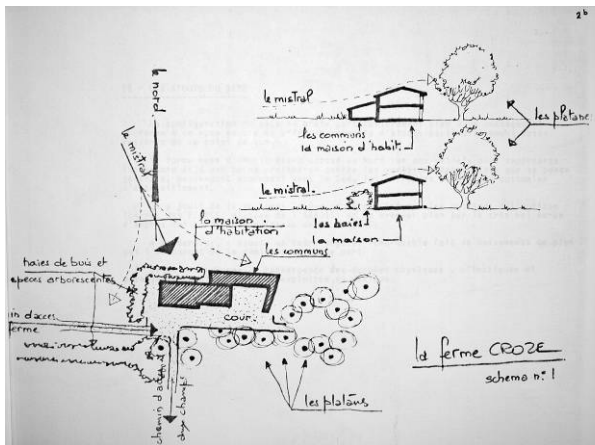 2b
le nord
le mistral
le mistral
les communs
la maison d'habit.
les platane
le mistral.
les haies
la maison
la maison
d'habitation
les communs
haies de buis et
arborescentes
cour
in d'accès
ferme
chemin d'accès
aux champ
les platans
la ferme CROZE
schema n° 1